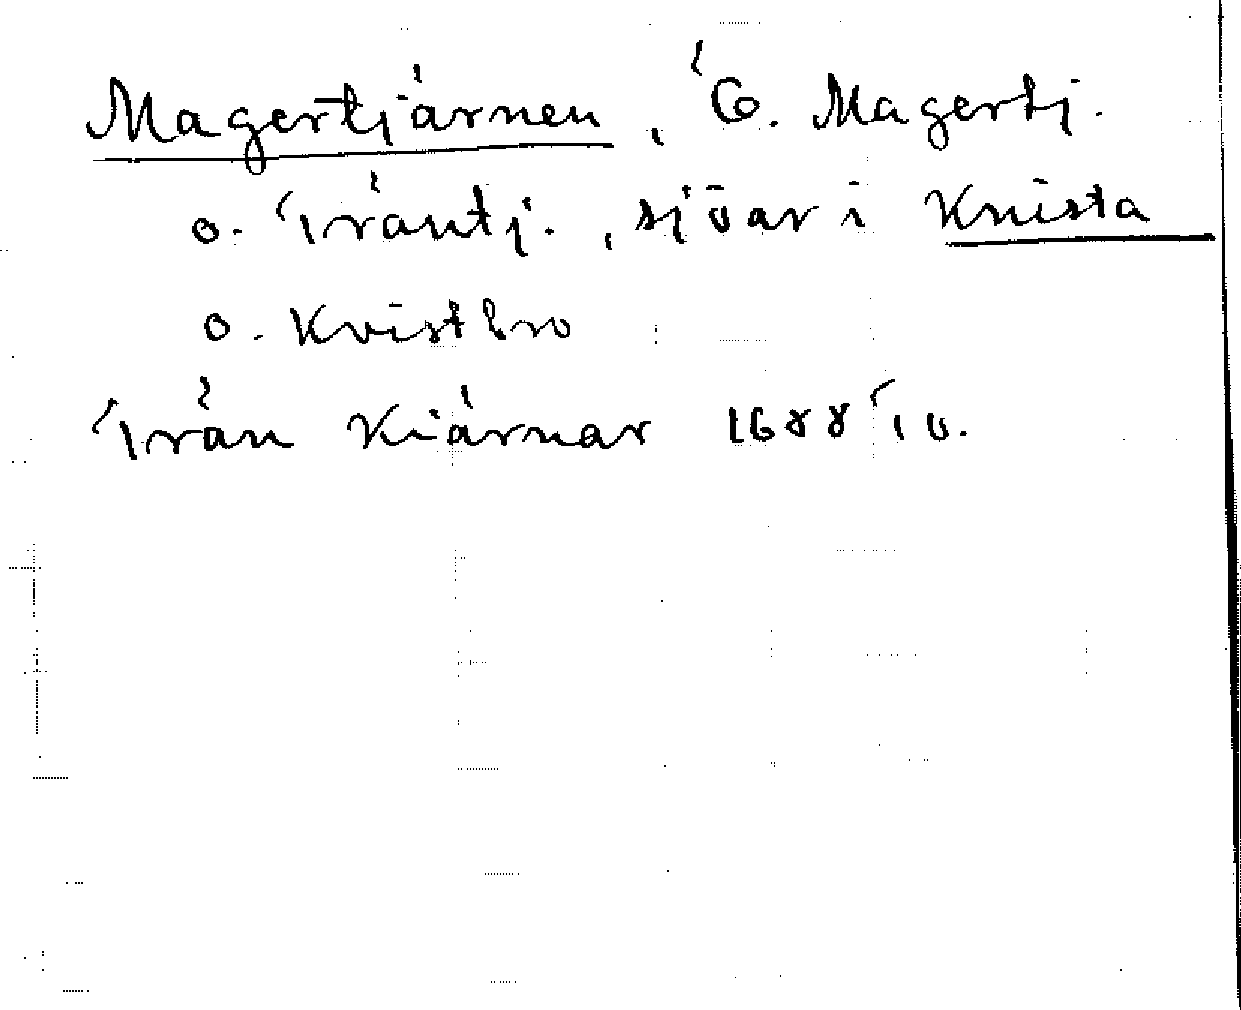 Magertjärnen, G. Magertj.
o. Träntj., sjöar i Knista
o. Kvistbro
Trän Kiärnar 1688 Tu.